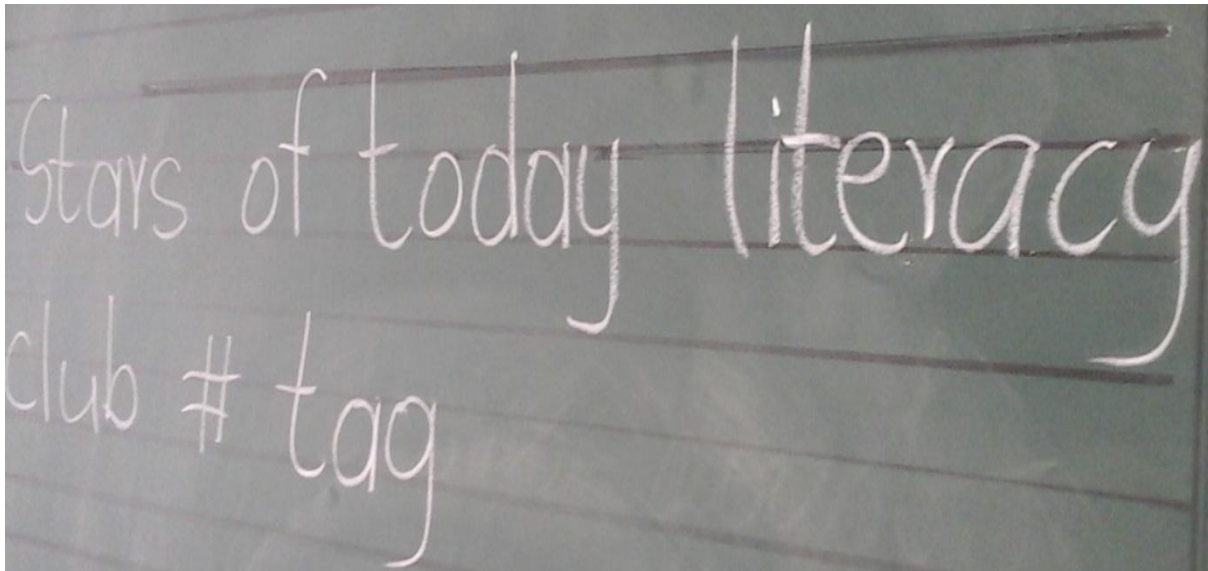 Stars of today literacy
club # tag